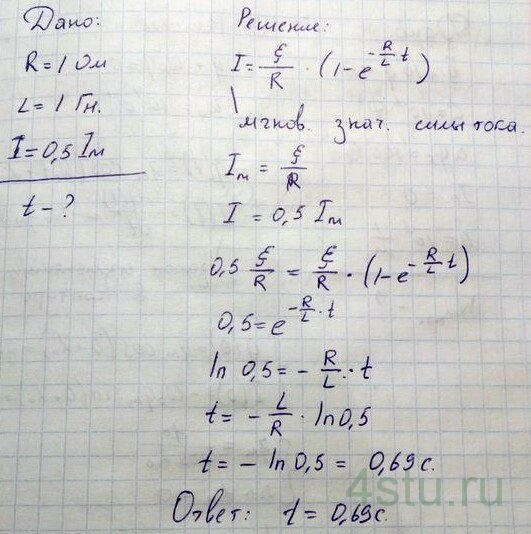 Дано:
R = 1 Ом
L = 1 Гн.
I = 0,5 Iм
t - ?
Решение:
I = ξ/R · (1 - e^(-R/L t))
мгнов. знач. силы тока.
Iм = ξ/R
I = 0,5 Iм
0,5 ξ/R = ξ/R · (1 - e^(-R/L t))
0,5 = e^(-R/L · t)
ln 0,5 = - R/L · t
t = - L/R · ln 0,5
t = - ln 0,5 = 0,69 с.
Ответ: t = 0,69 с.
4stu.ru